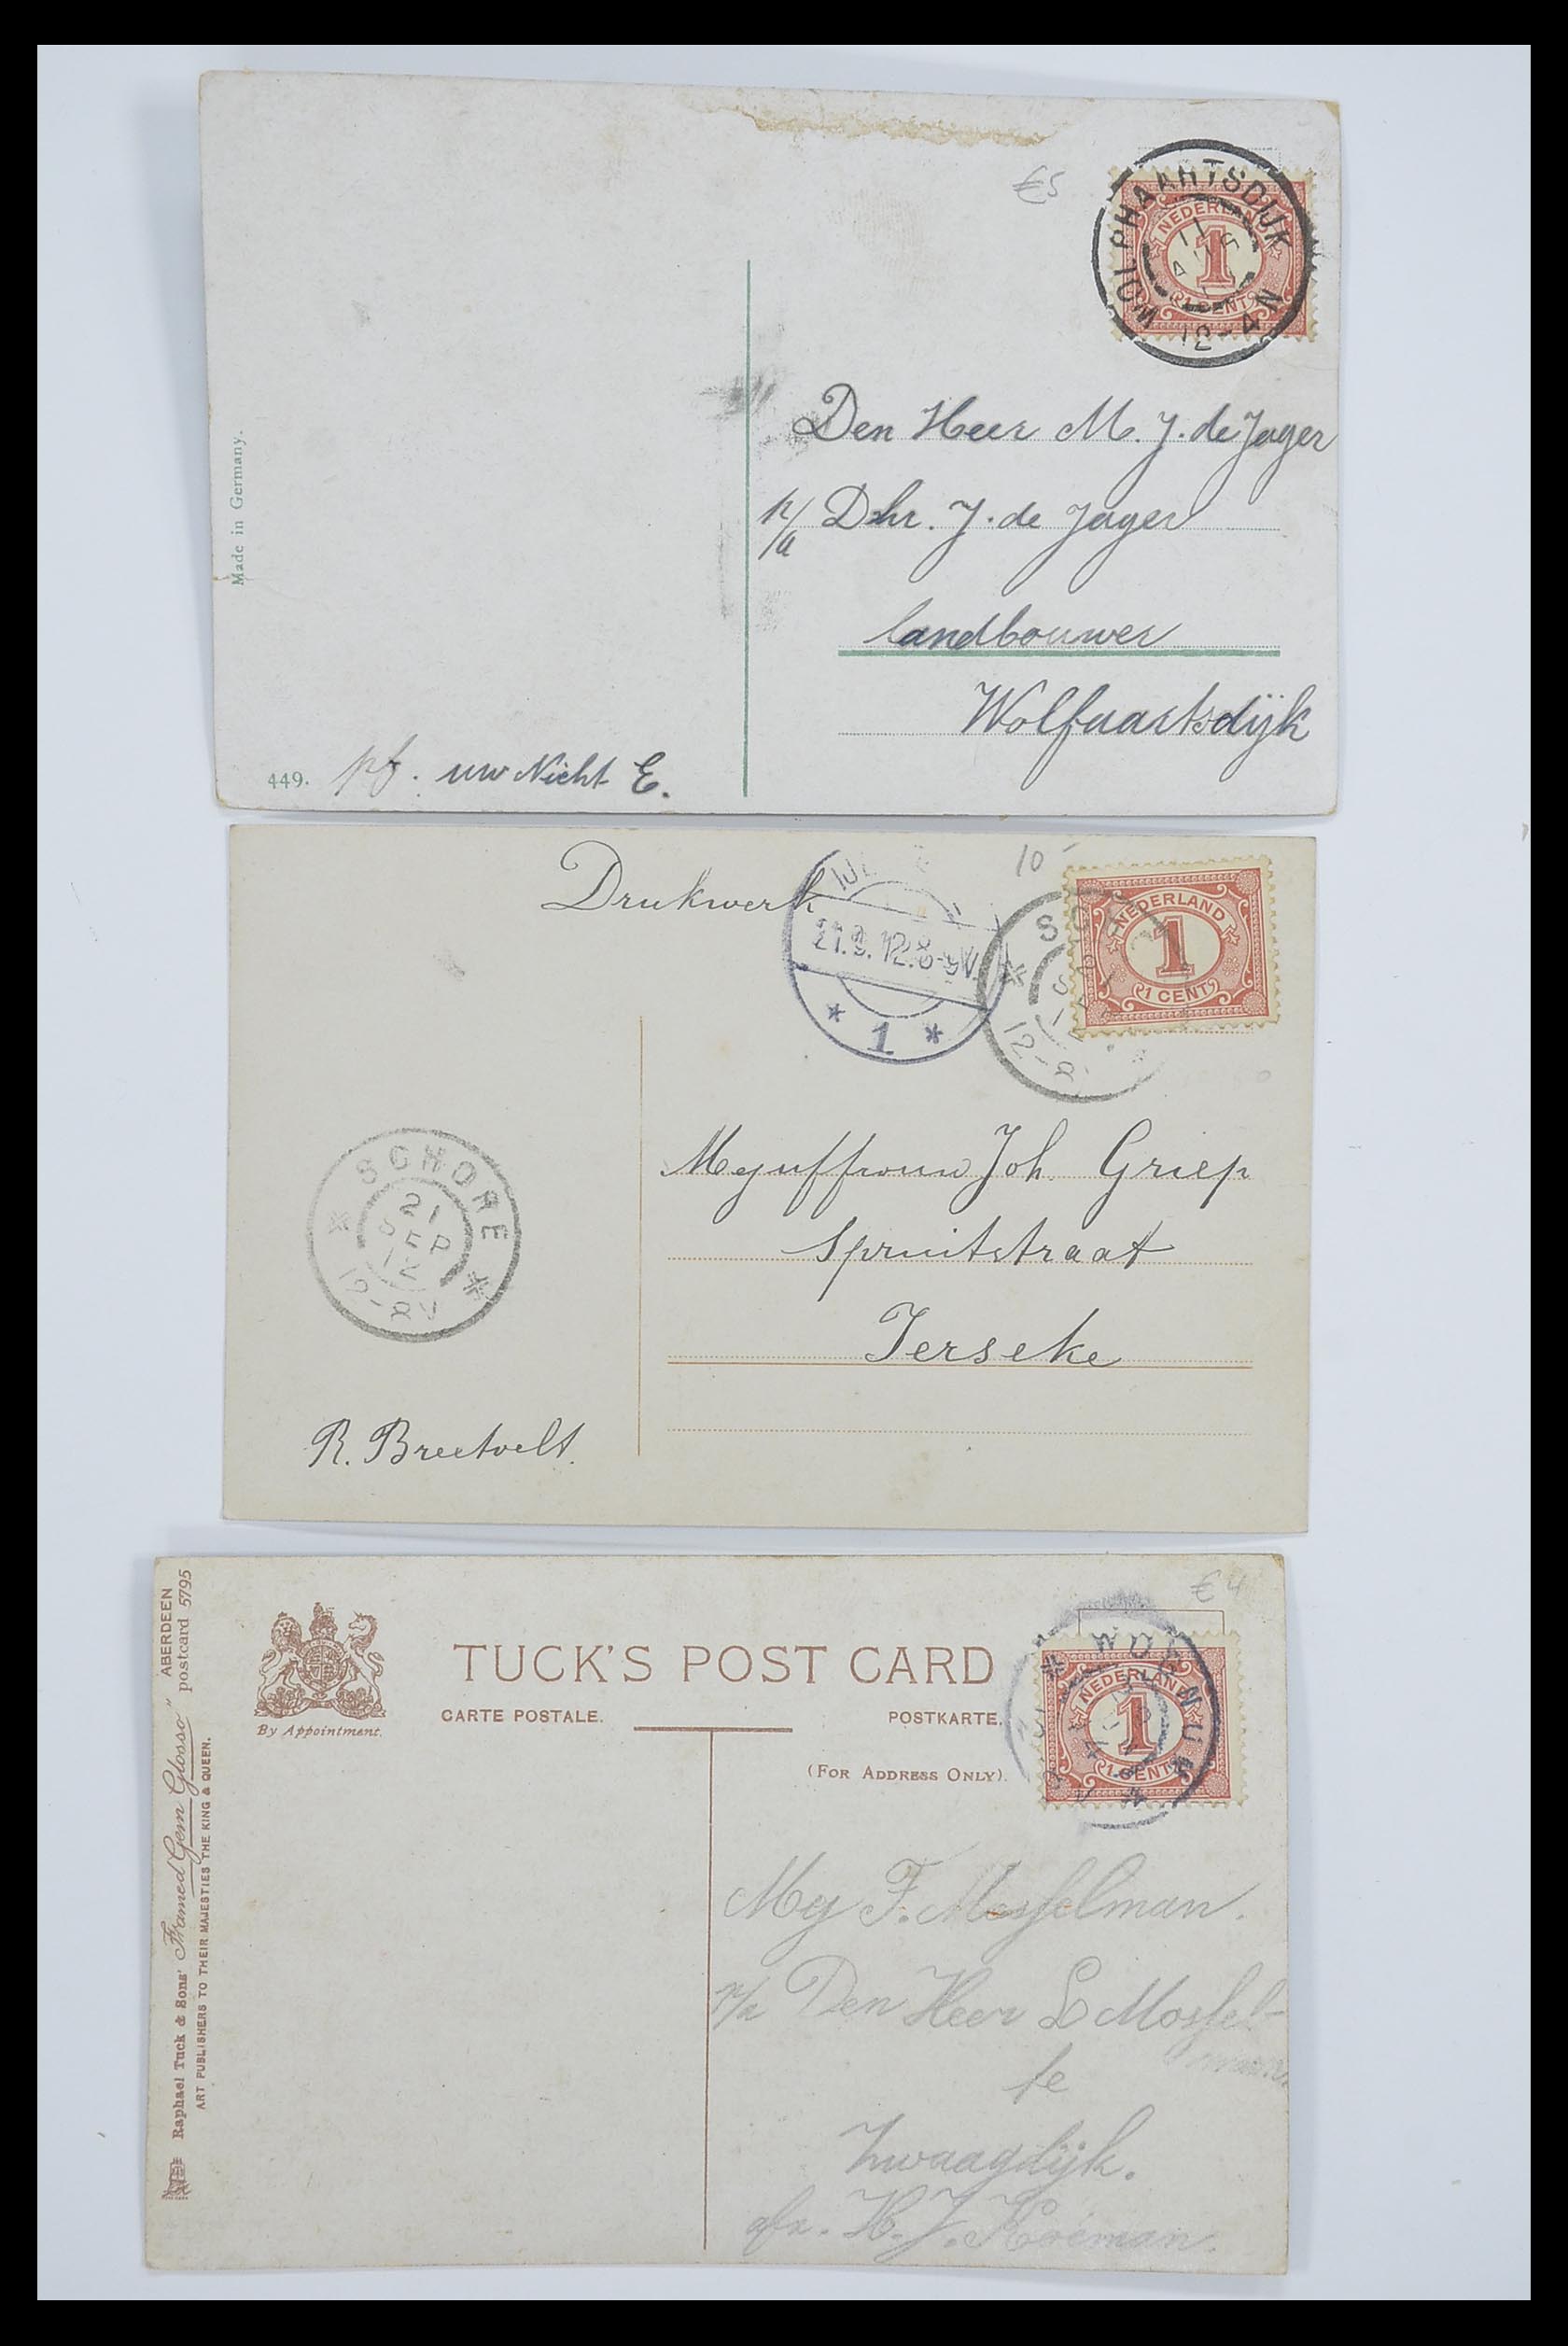 €5
WOLPHAARTSDIJK
11
AUG
12-4N
NEDERLAND
1
1 CENT
Den Heer M. J. de Jager
p/a Dhr. J. de Jager
landbouwer
Wolfaartsdijk
Made in Germany.
449. pf. uw Nicht E.
Drukwerk
10-
21.9.12.8-9V.
* 1 *
12-8
NEDERLAND
1
1 CENT
Mejuffrouw Joh. Griep
Spruitstraat
Ierseke
SCHORE
21
SEP
12
12-8V
R. Breetvelt.
€4
TUCK'S POST CARD
CARTE POSTALE.
POSTKARTE.
(For Address Only).
By Appointment.
NEDERLAND
1
1 CENT
Mej F. Mosselman.
p/a Den Heer L Mossel-
man
te
Zwaagdijk.
afz. H. J. Koeman.
Raphael Tuck & Sons' Framed Gem Glosso" ABERDEEN
postcard 5795
ART PUBLISHERS TO THEIR MAJESTIES THE KING & QUEEN.